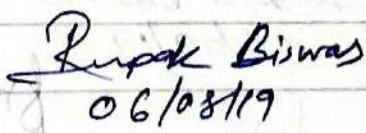 Rupak Biswas
06/08/19